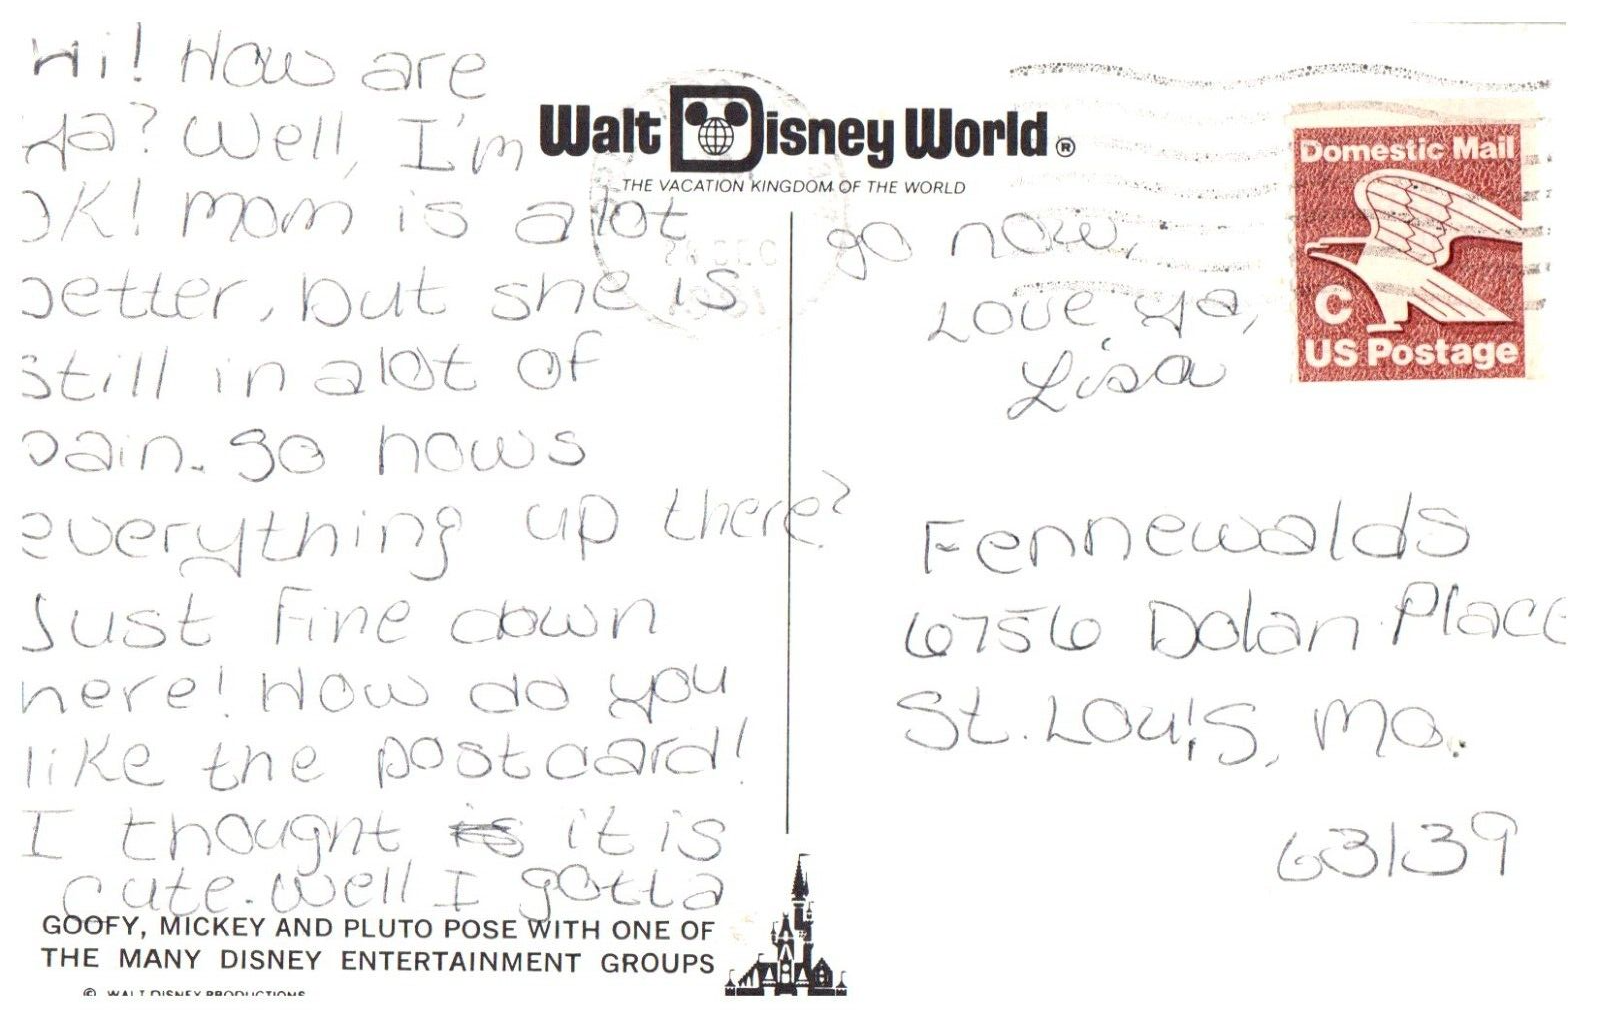 Hi! How are
ya? Well, I'm
OK! Mom is alot
better, but she is
still in alot of
pain. So hows
everything up there?
Just Fine down
here! How do you
like the postcard!
I thought is it is
cute. Well I gotta
go now.
Love ya,
Lisa
Walt Disney World®
THE VACATION KINGDOM OF THE WORLD
Domestic Mail
C
US Postage
DEC
Fennewalds
6756 Dolan Place
St. Louis, Mo.
63139
GOOFY, MICKEY AND PLUTO POSE WITH ONE OF
THE MANY DISNEY ENTERTAINMENT GROUPS
© WALT DISNEY PRODUCTIONS